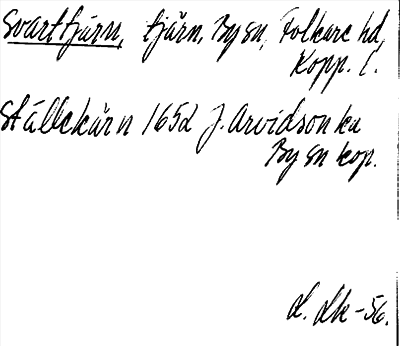 Svarttjärn, tjärn, By sn, Folkare hd,
Kopp. l.
Ställekärn 1652 J. Arvidson ka
By sn kop.
L. Lk -56.